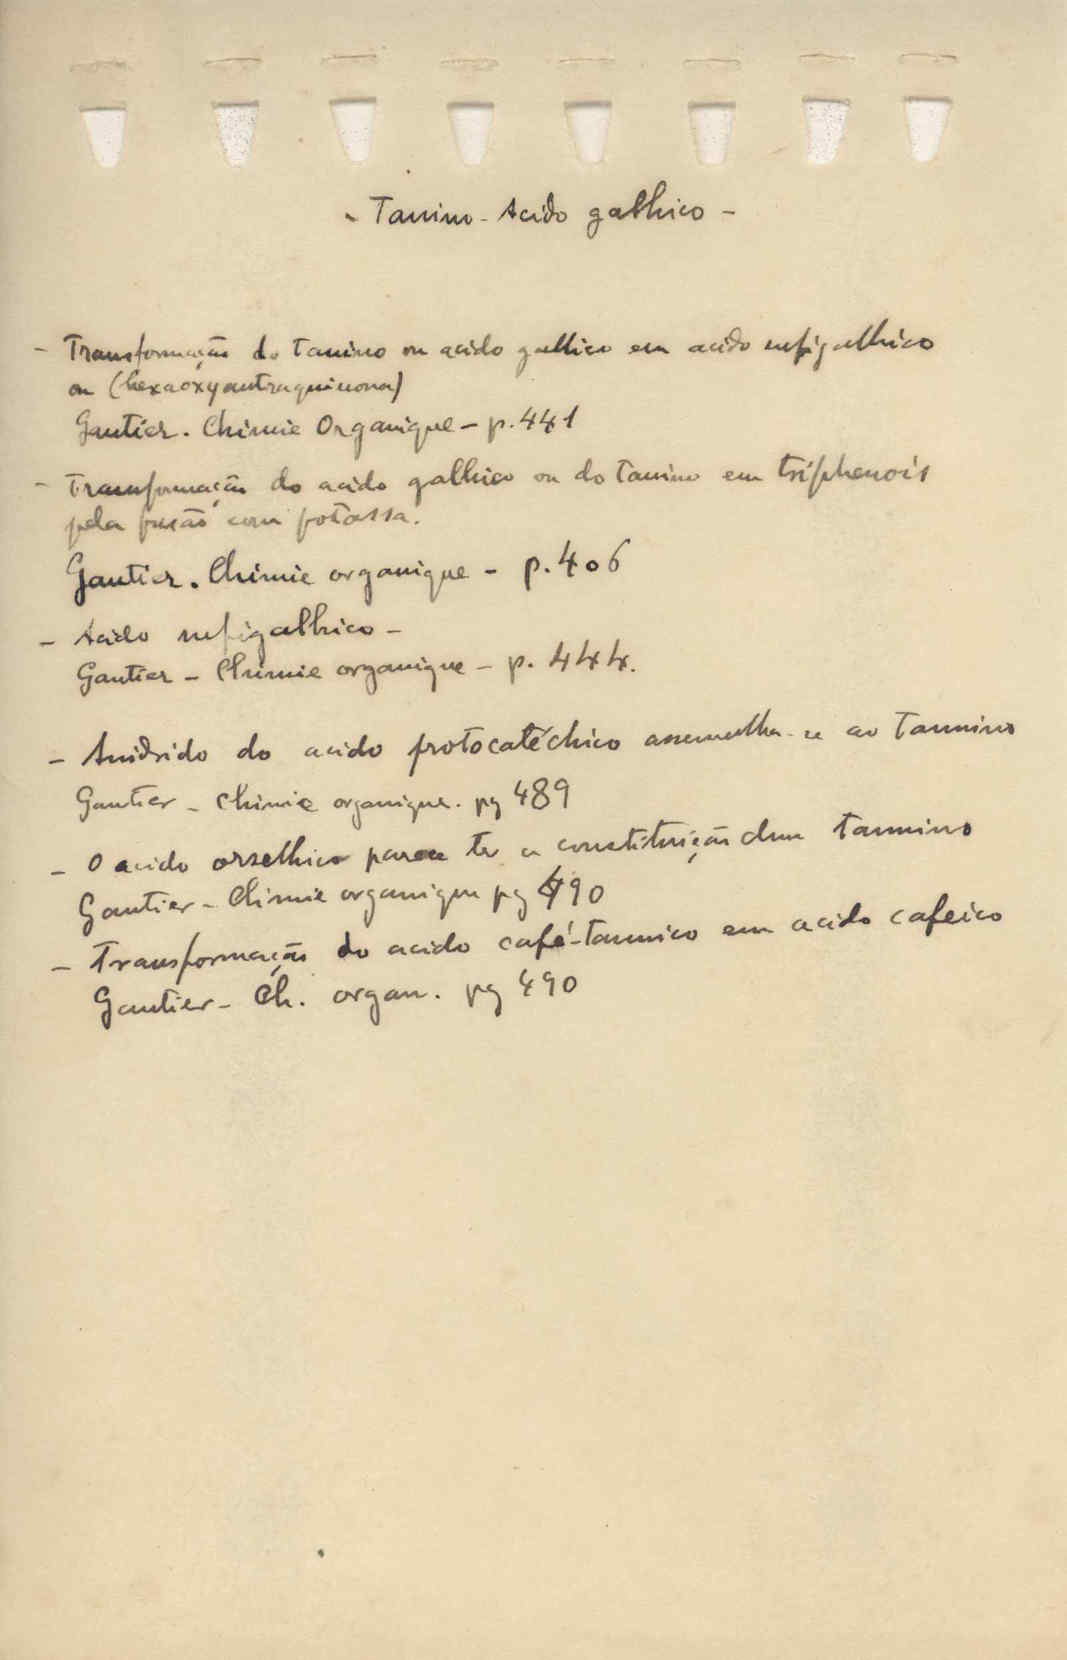 - Tanino - Acido galhico -
- Transformação do Tanino ou acido galhico em acido rufigalhico
ou (hexaoxyantraquinona)
Gautier. Chimie Organique - p. 441
- Transformação do acido galhico ou do Tanino em tríphenois
pela fusão com potassa.
Gautier. Chimie organique - p. 406
- Acido rufigalhico -
Gautier - Chimie organique - p. 444.
- Anidrido do acido protocatéchico assemelha-se ao Tannino
Gautier - Chimie organique. pg 489
- O acido orselhico parece ter a constituição dum tannino
Gautier - Chimie organique pg 490
- Transformação do acido café-tannico em acido cafeico
Gautier - Ch. organ. pg 490